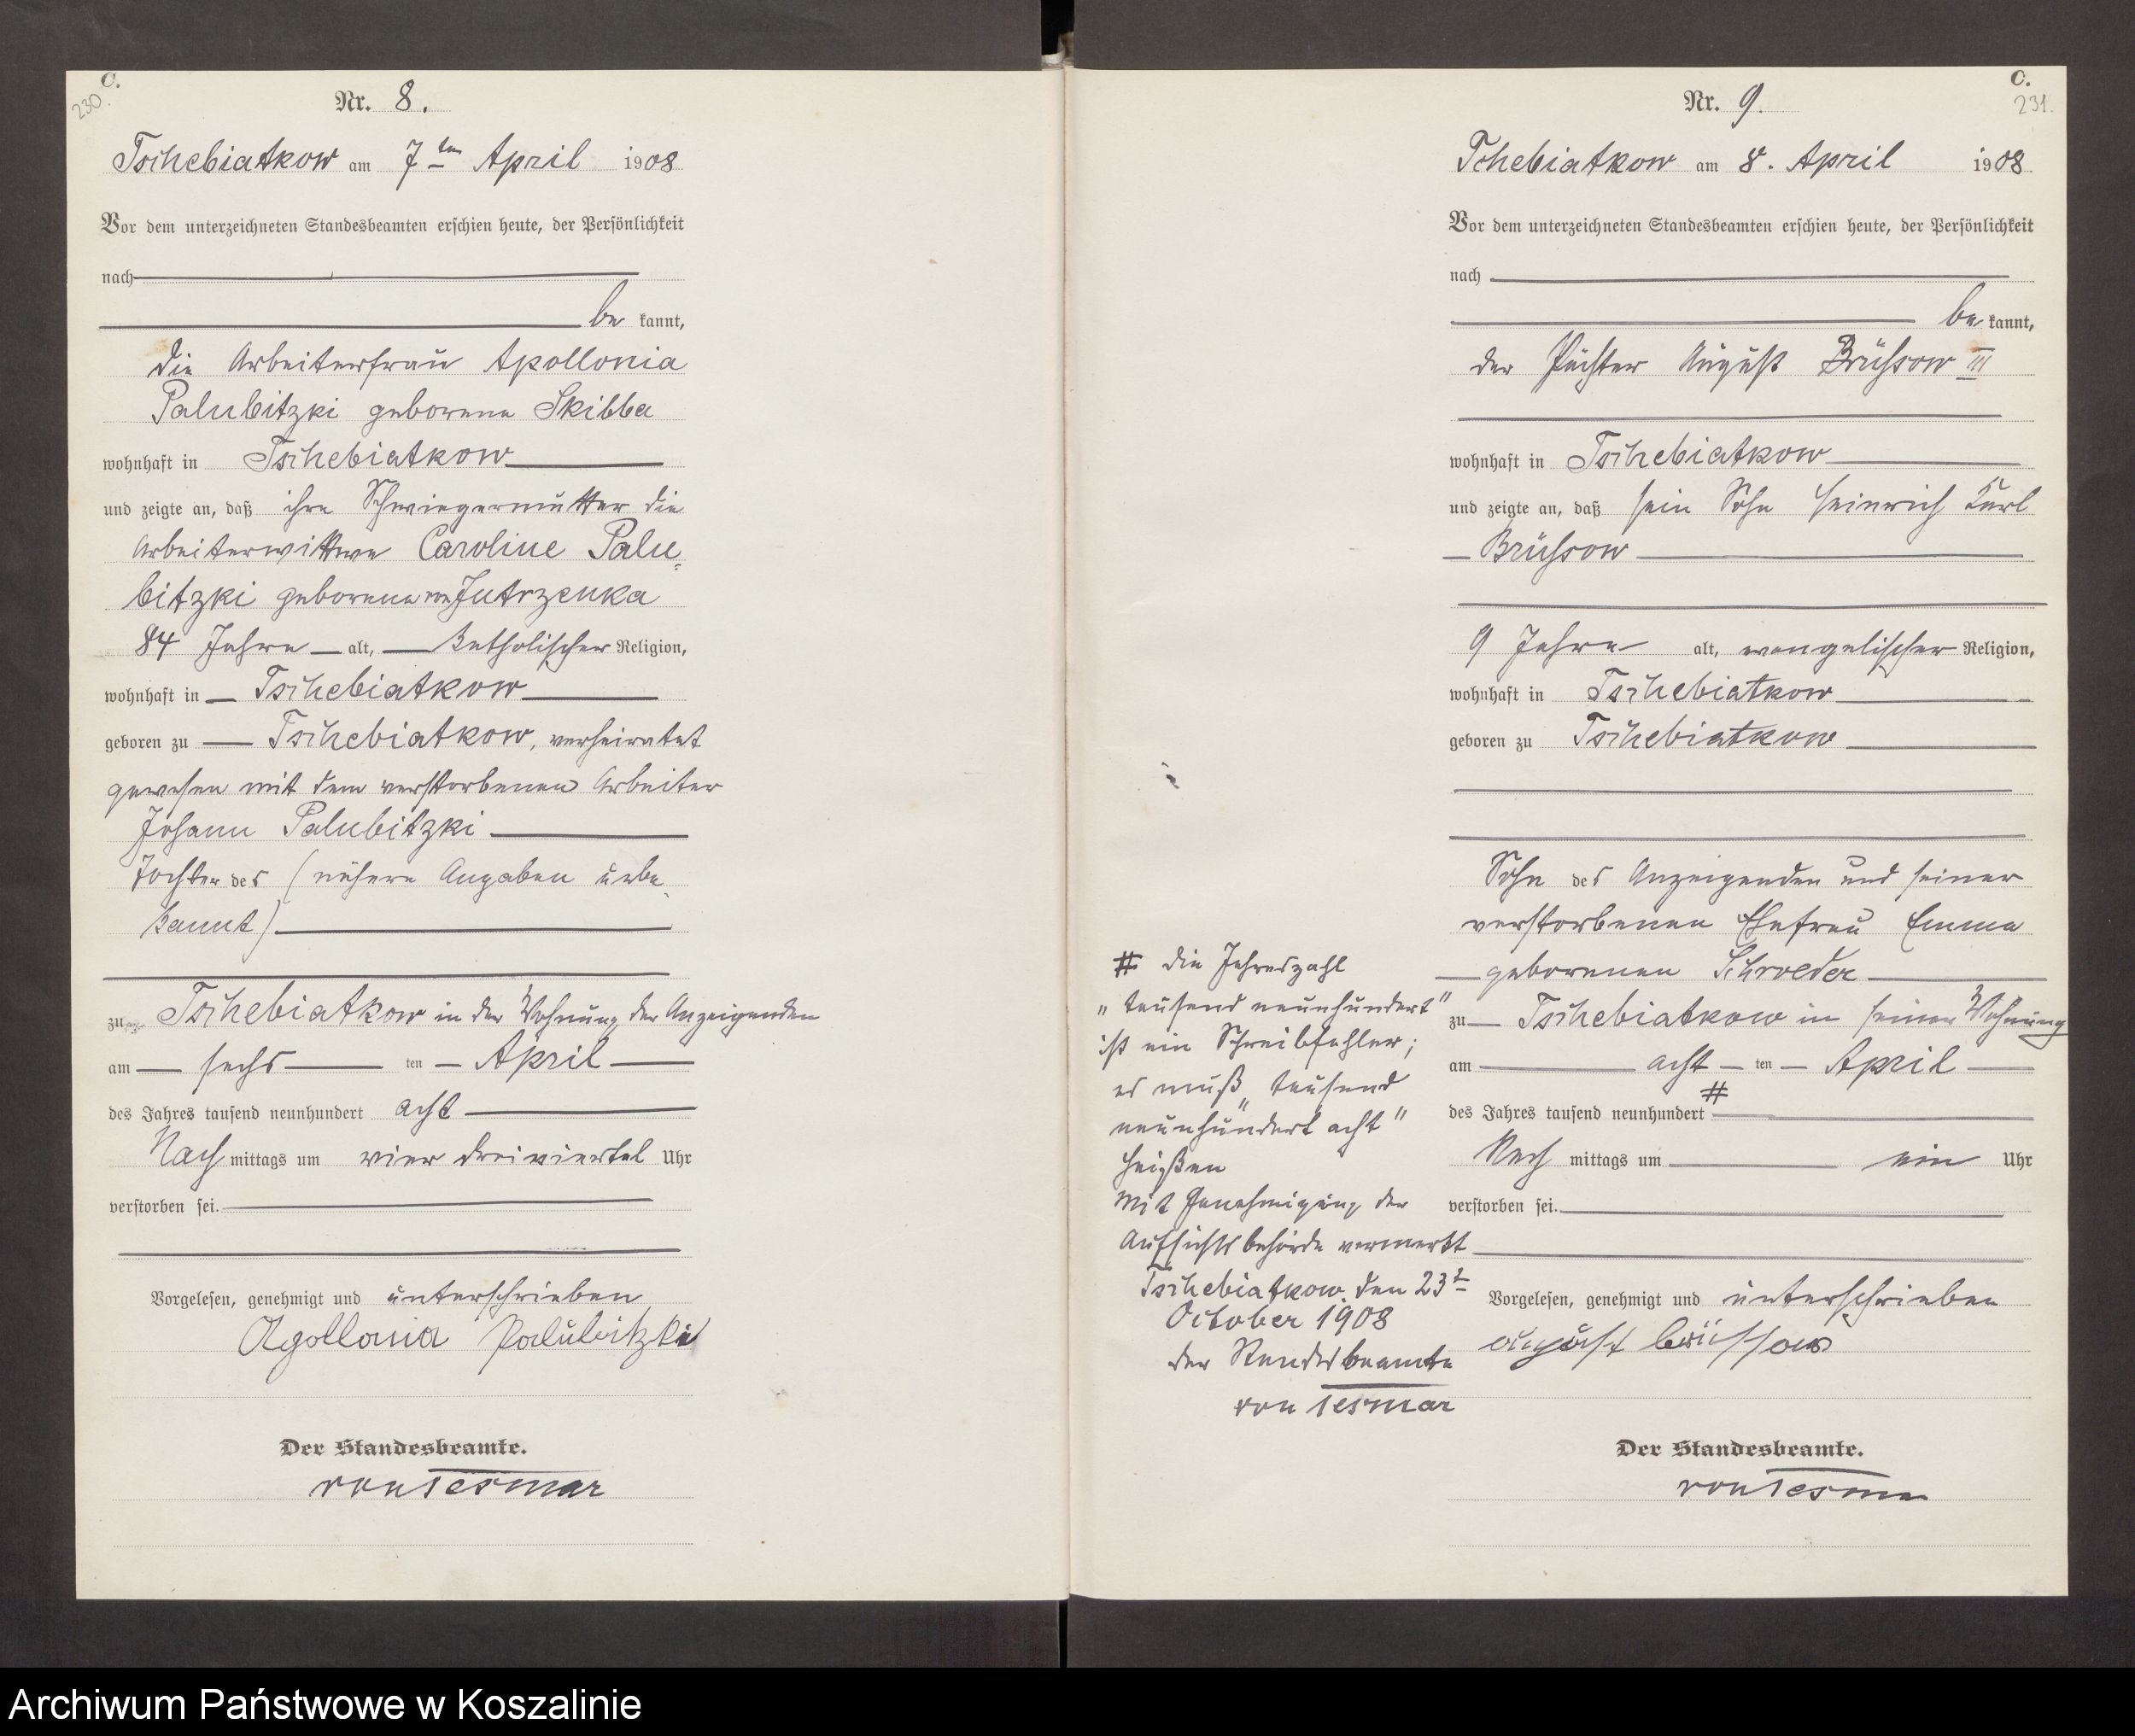 C.
230.
Nr. 8.
Tschebiatkow am 7ten April 1908
Vor dem unterzeichneten Standesbeamten erschien heute, der Persönlichkeit
nach
be kannt,
die Arbeiterfrau Apollonia
Palubitzki geborene Skibba
wohnhaft in Tschebiatkow
und zeigte an, daß ihre Schwiegermutter die
Arbeiterwittwe Caroline Palu-
bitzki geborene von Jutrzenka
84 Jahre alt, katholischer Religion,
wohnhaft in Tschebiatkow
geboren zu Tschebiatkow, verheiratet
gewesen mit dem verstorbenen Arbeiter
Johann Palubitzki
Tochter des (nähere Angaben unbe-
kannt)
zu Tschebiatkow in der Wohnung der Anzeigenden
am sechs ten April
des Jahres tausend neunhundert acht
Nach mittags um vier dreiviertel Uhr
verstorben sei.
Vorgelesen, genehmigt und unterschrieben
Apollonia Palubitzki
Der Standesbeamte.
von Tesmar
C.
231.
Nr. 9.
Tchebiatkow am 8. April 1908
Vor dem unterzeichneten Standesbeamten erschien heute, der Persönlichkeit
nach
be kannt,
der Pächter August Brüssow III
wohnhaft in Tschebiatkow
und zeigte an, daß sein Sohn Heinrich Karl
Brüssow
9 Jahre alt, evangelischer Religion,
wohnhaft in Tschebiatkow
geboren zu Tschebiatkow
Sohn des Anzeigenden und seiner
verstorbenen Ehefrau Emma
geborenen Schroeder
zu Tschebiatkow in seiner Wohnung
am acht ten April
des Jahres tausend neunhundert #
Nach mittags um ein Uhr
verstorben sei.
Vorgelesen, genehmigt und unterschrieben
august brüssow
Der Standesbeamte.
von Tesmar
# die Jahreszahl
„tausend neunhundert"
ist ein Schreibfehler;
es muß „tausend
neunhundert acht"
heißen
Mit Genehmigung der
Aufsichtsbehörde vermerkt
Tschebiatkow, den 23t
October 1908
der Standesbeamte
von Tesmar
Archiwum Państwowe w Koszalinie